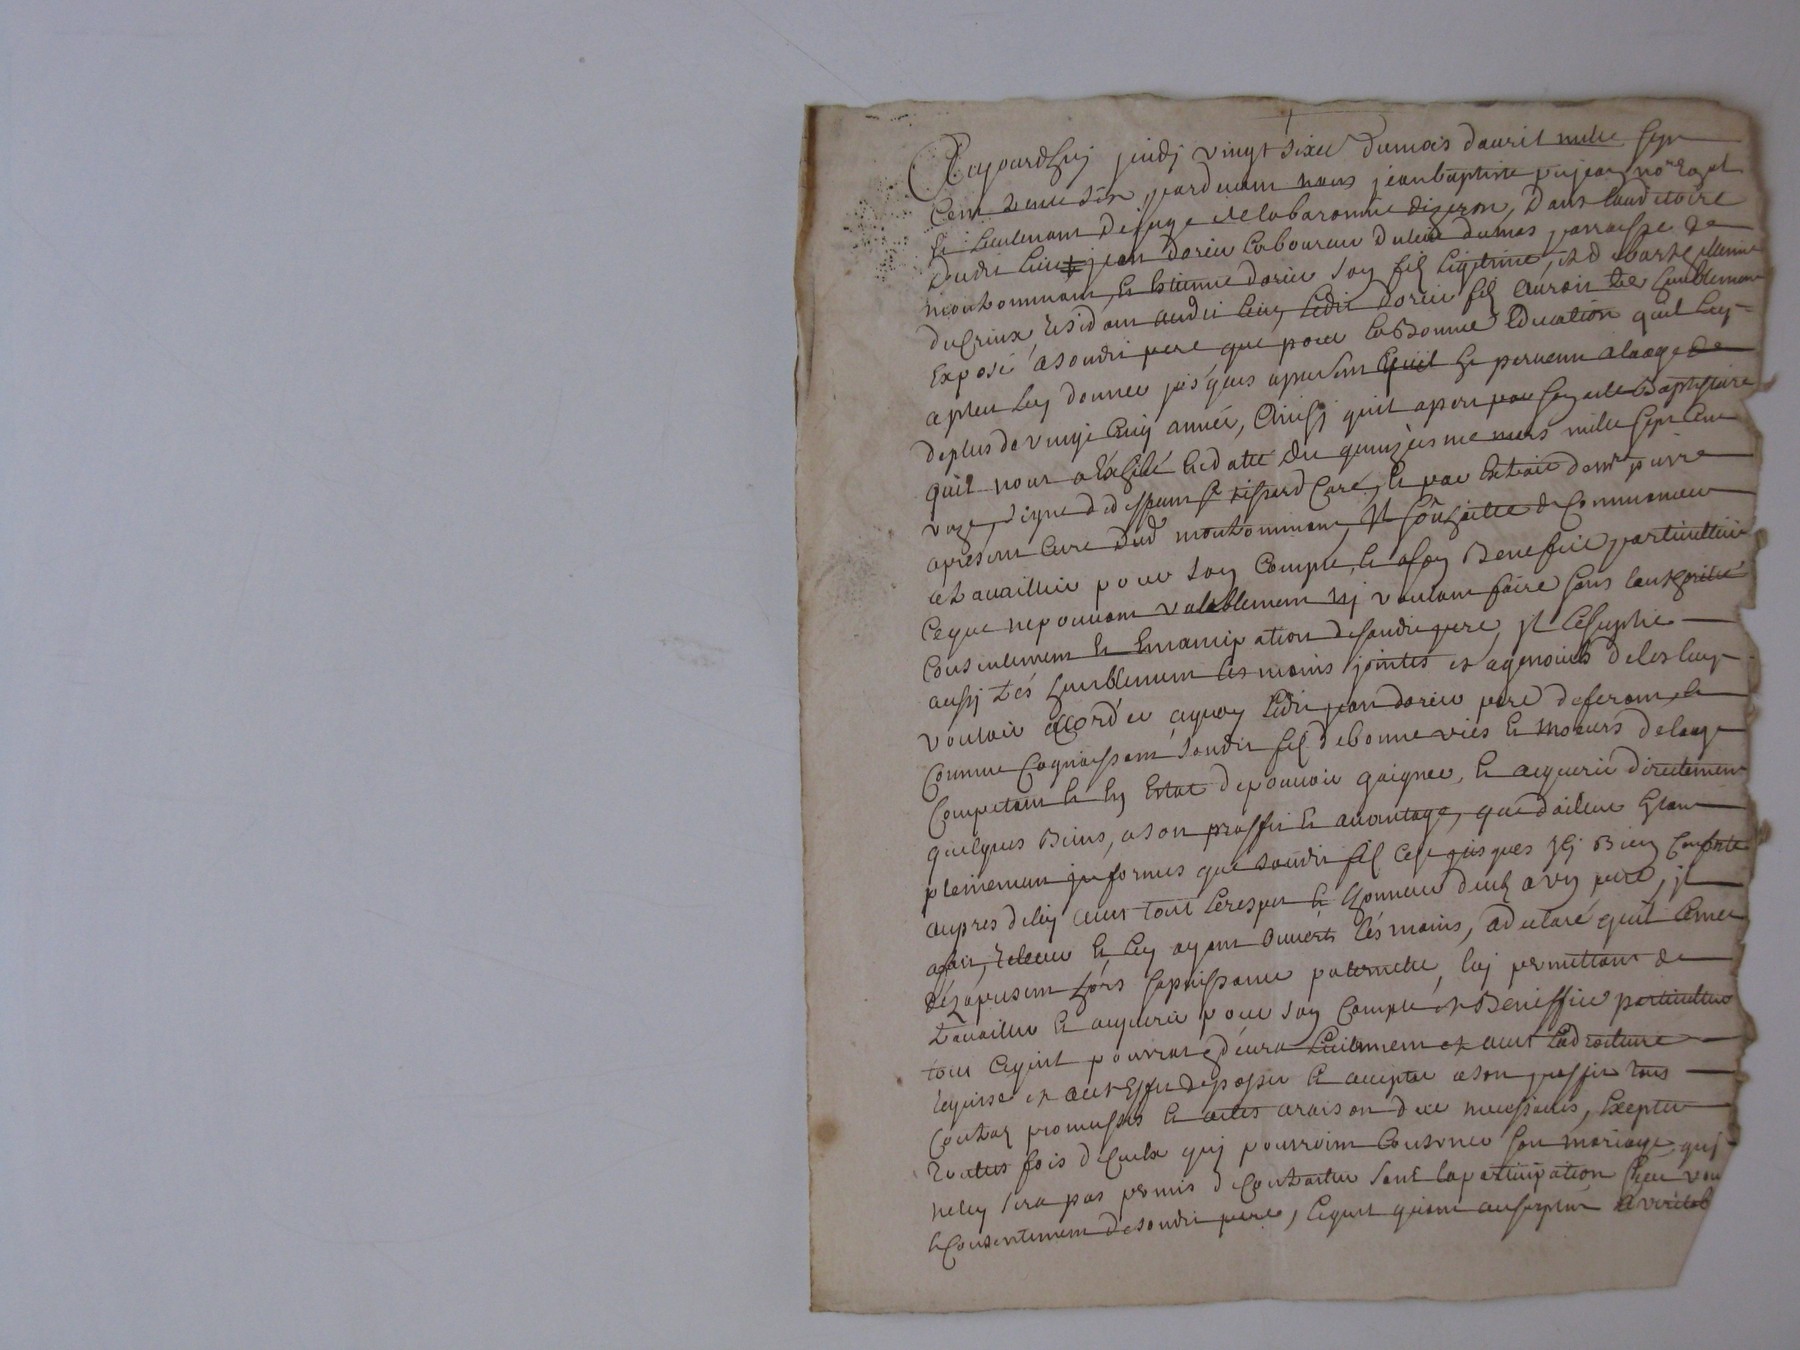 Aujourdhuy jeudy vingt sixe du mois dauril mille sept
cent trente six, pardeuant nous jean baptiste pujean nore royal
et Lieutenant de juge de la baronnie, dans lauditoire
dudit Lieu jean dorier Laboureur du Lieu dumas parroisse de
montrominant, et Estienne dorier son fils Legitime, et d
du Crieux, residant audit Lieu, Ledit dorier fils auroit tres humblement
Exposé a son dit pere que pour la Bonne Education quil luy
a pleu luy donner jusques apresent quil Est peruenu a laage de
de plus de vingt cinq année, Ainsy quil apert par son acte Baptistaire
quil nous a Exhibé en datte du quinziesme mars mille sept cent
onze, signé curé, et par Extrait de mr pierre
apresent curé dud montrominant, Il souhaitte de Commancer
a trauaillier pour son Compte, et a son Beneffice particullier
Ce que ne pouuant valablement ny voulant faire sans lauthorité
Consentement et Emancipation de son dit pere, Il Le suplie
aussy tres humblement les mains jointes et a genouils de les luy
vouloir accorder a quoy Ledit jean dorier pere deferant, et
Comme Cognoissant son dit fils de bonne vies et moeurs de laage
Competant et En Estat de pouuoir gaigner, et acquerir directement
quelques Biens, a son proffit et auantage, que dailleur Estant
pleinement jnformés que son dit fils cest jusques Icy Bien Comporté
aupres de luy auec tout Le respet et honneur deub a un pere, jl
a fait, releuer et luy ayant ouuerts les mains, a declaré quil Lemet
dez apresent hors sa puissance paternelle, luy permettant de
trauailler et acquerir pour son Compte et Beneffice particullier
tout ce quil pourrat Licitement et auec La droiture
requise et a cet Effet de passer et accepter a son proffit tous
Contrats promesses et actes a raison de ce necessaires, Excepter
touttes fois de Ceulx quy pourroint Concerner son mariage quj
ne luy sera pas permis de Contracter sans la participation
et Consentement de son dit pere, Lequel